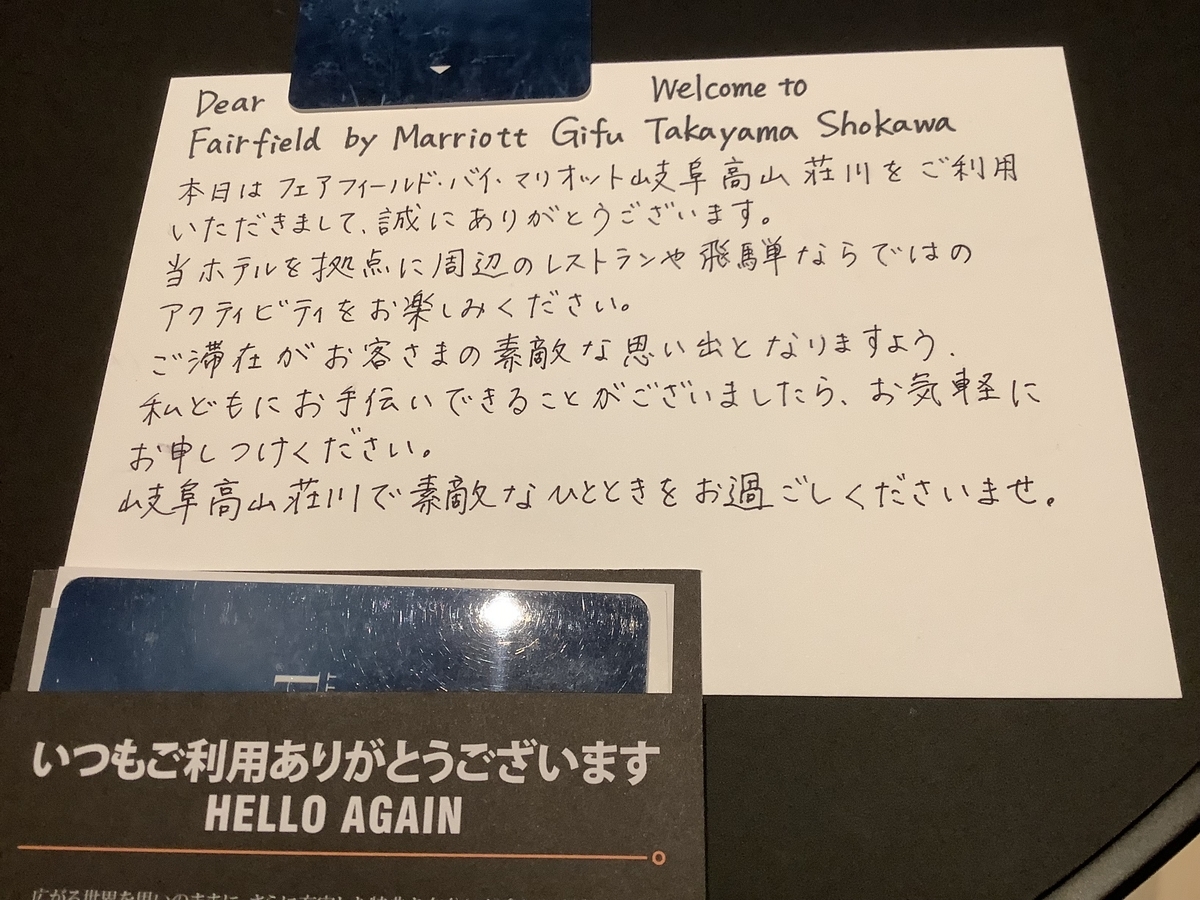 Dear Welcome to
Fairfield by Marriott Gifu Takayama Shokawa
本日はフェアフィールド・バイ・マリオット岐阜高山荘川をご利用
いただきまして、誠にありがとうございます。
当ホテルを拠点に周辺のレストランや飛騨ならではの
アクティビティをお楽しみください。
ご滞在がお客さまの素敵な思い出となりますよう、
私どもにお手伝いできることがございましたら、お気軽に
お申しつけください。
岐阜高山荘川で素敵なひとときをお過ごしくださいませ。
いつもご利用ありがとうございます
HELLO AGAIN